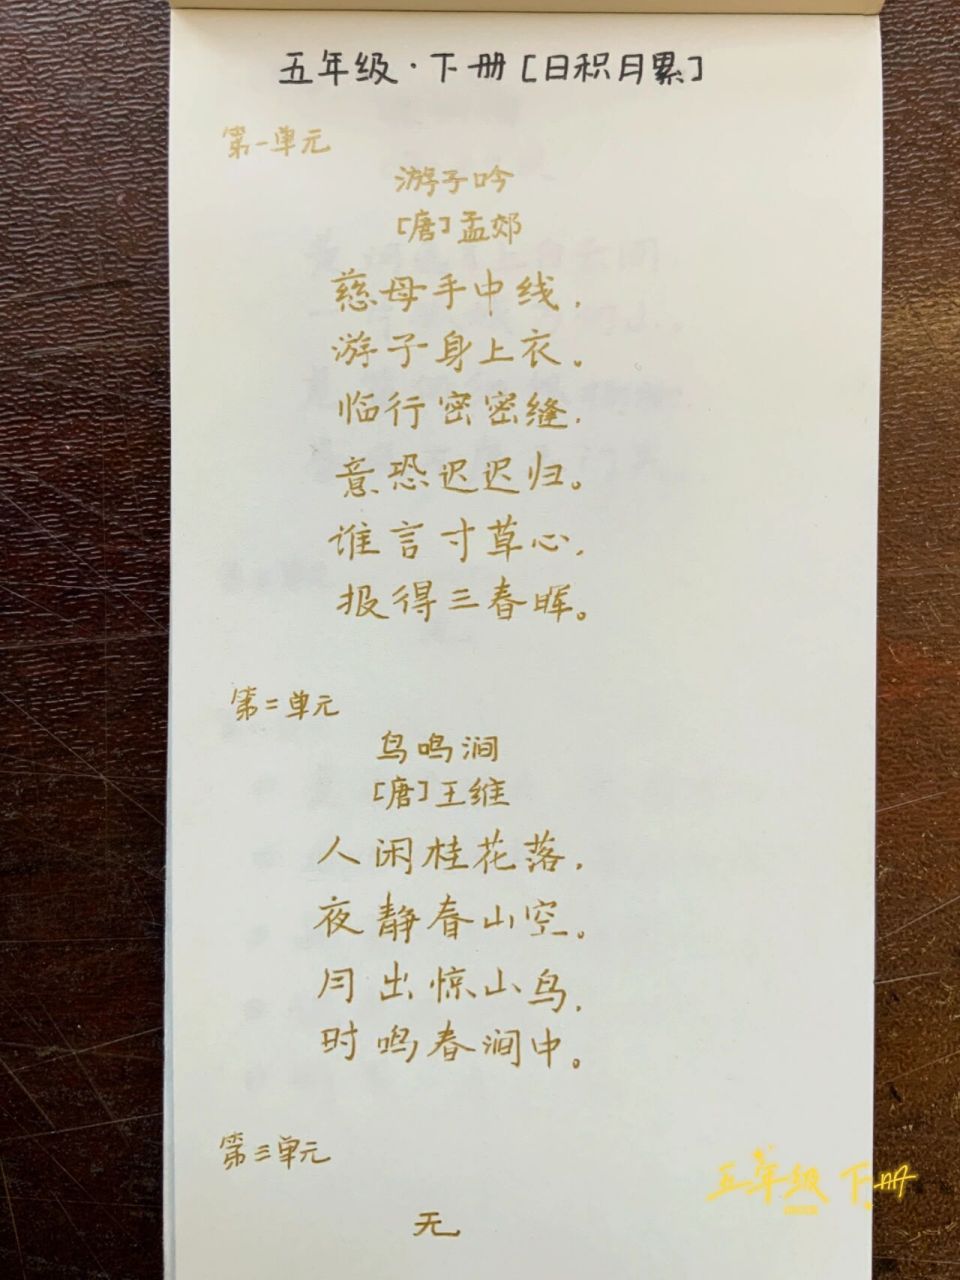 五年级·下册[日积月累]
第一单元
游子吟
[唐]孟郊
慈母手中线,
游子身上衣。
临行密密缝,
意恐迟迟归。
谁言寸草心,
报得三春晖。
第二单元
鸟鸣涧
[唐]王维
人闲桂花落,
夜静春山空。
月出惊山鸟,
时鸣春涧中。
第三单元
五年级下册
无